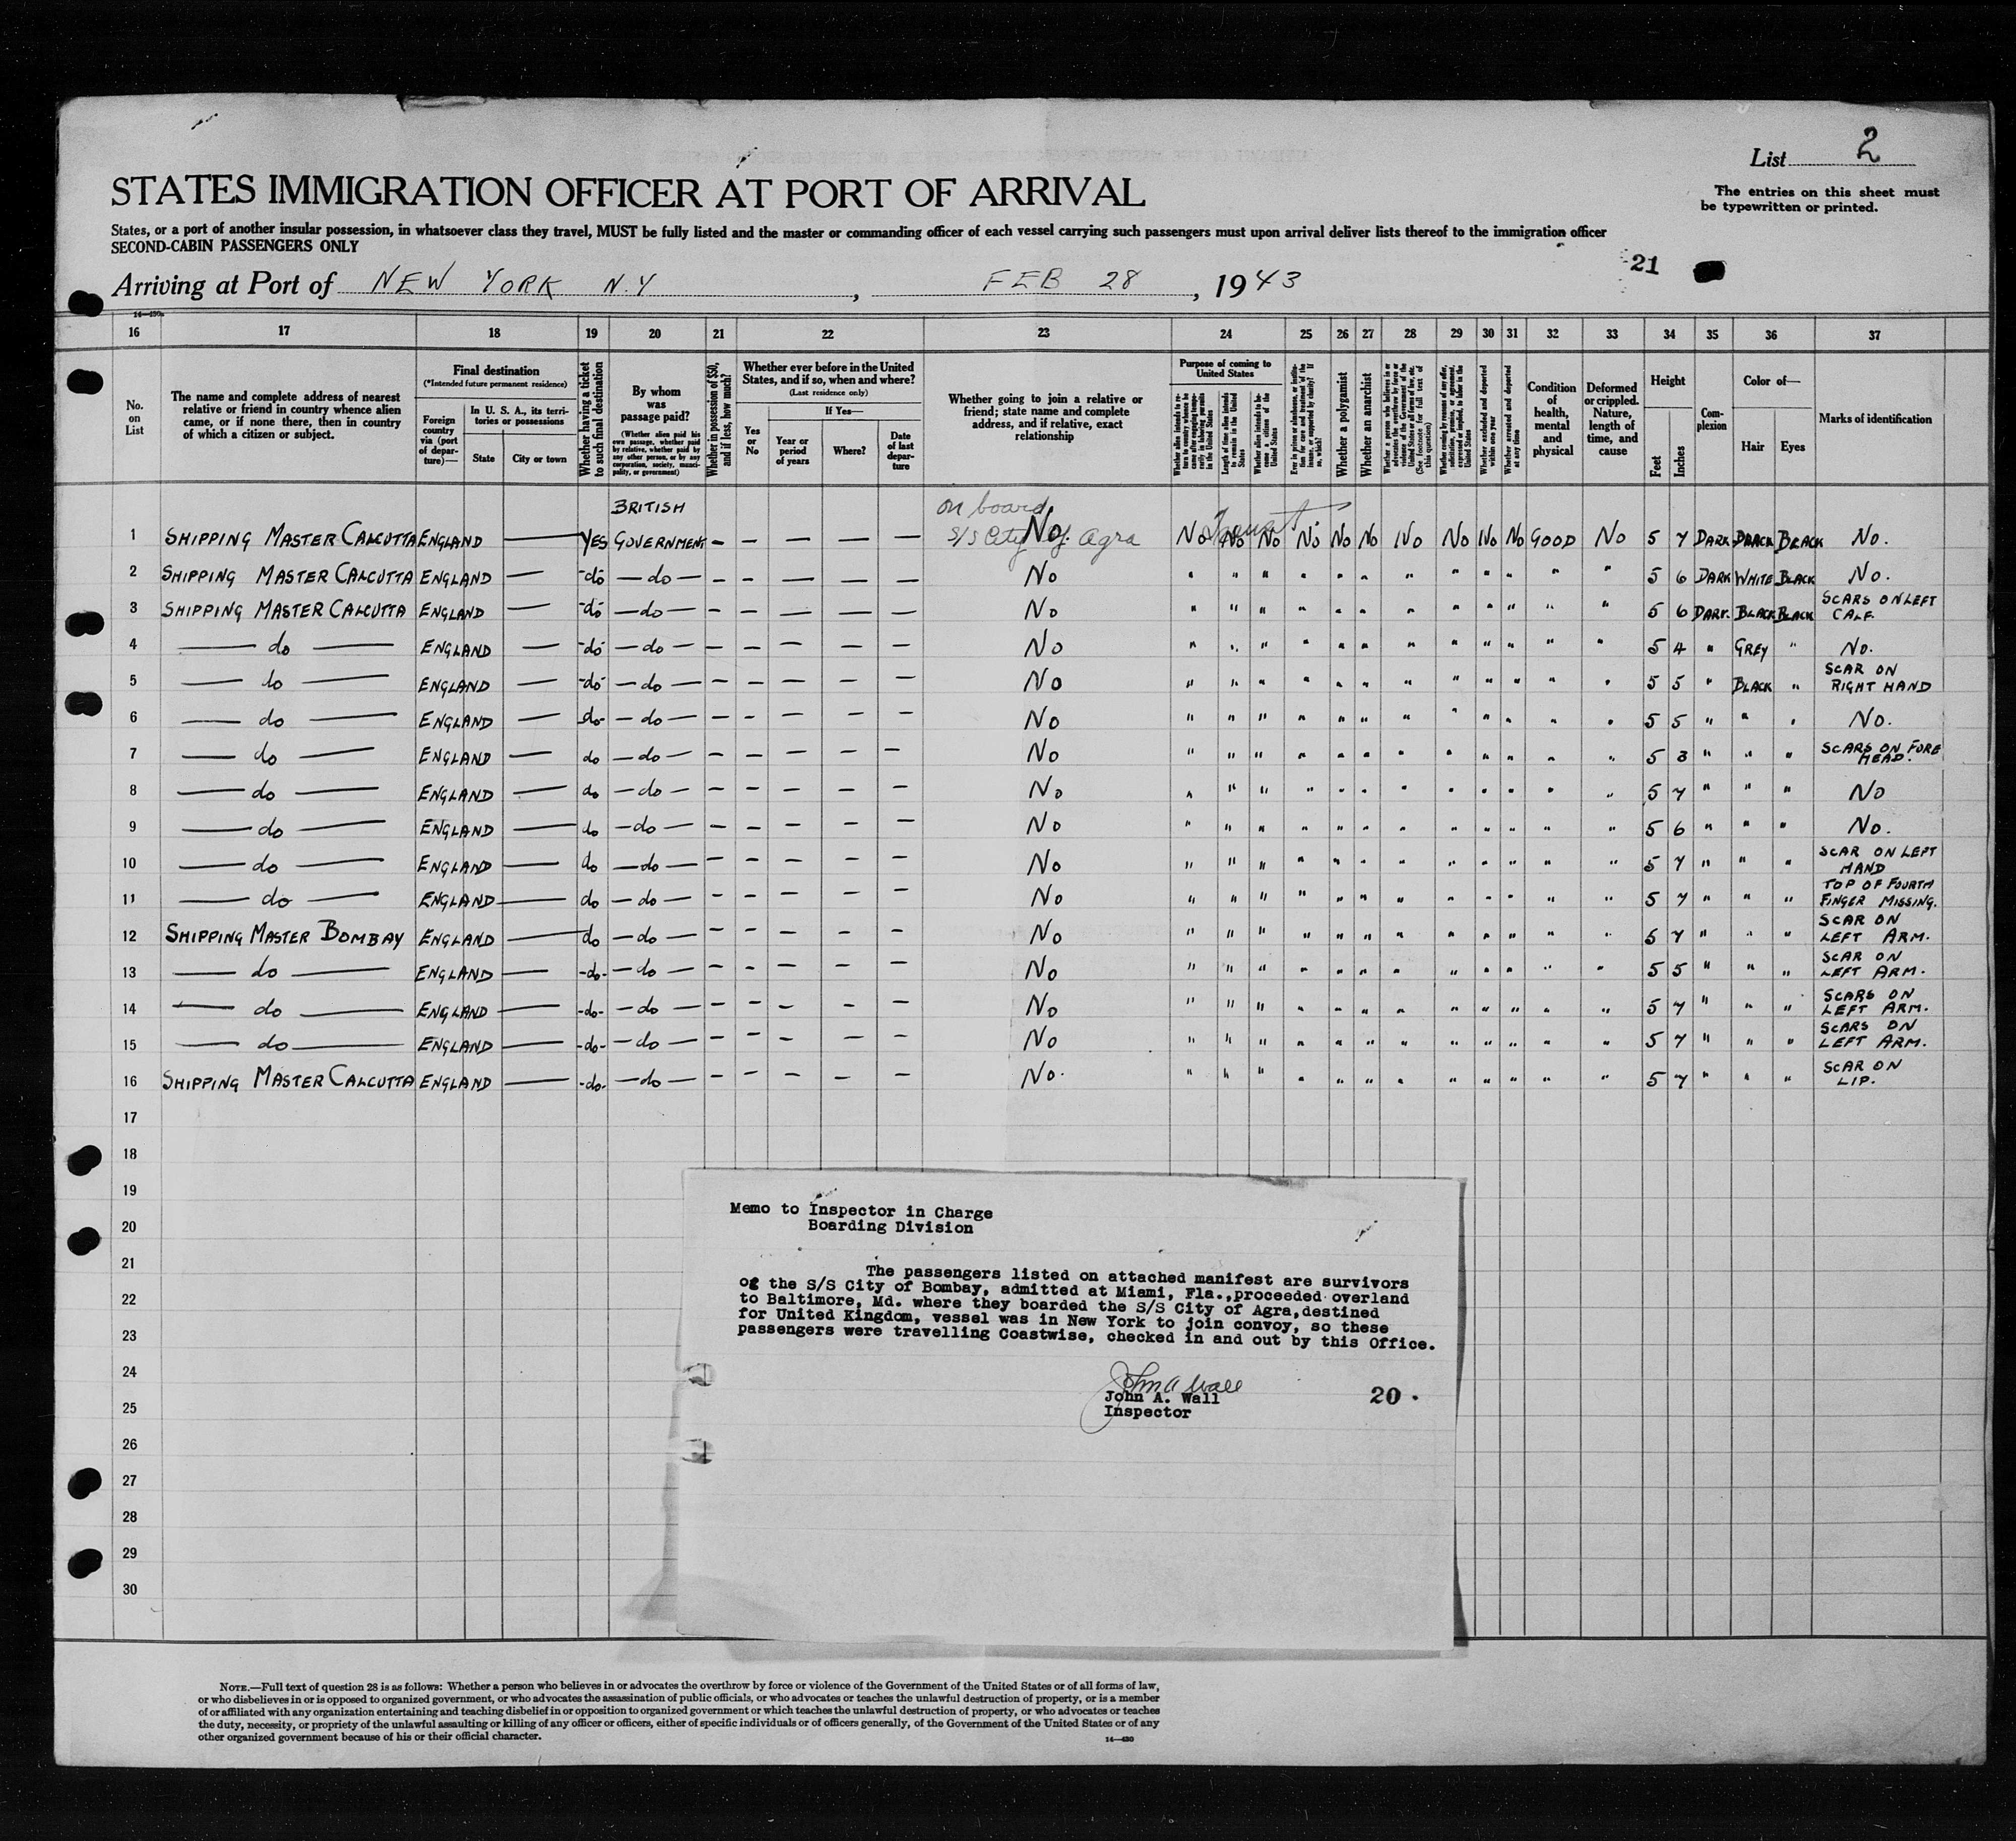 List 2
The entries on this sheet must
be typewritten or printed.
STATES IMMIGRATION OFFICER AT PORT OF ARRIVAL
States, or a port of another insular possession, in whatsoever class they travel, MUST be fully listed and the master or commanding officer of each vessel carrying such passengers must upon arrival deliver lists thereof to the immigration officer
SECOND-CABIN PASSENGERS ONLY
21
Arriving at Port of NEW YORK N.Y , FEB 28 , 1943
16 17 18 19 20 21 22 23 24 25 26 27 28 29 30 31 32 33 34 35 36 37
No. on List
The name and complete address of nearest relative or friend in country whence alien came, or if none there, then in country of which a citizen or subject.
Final destination
(*Intended future permanent residence)
Foreign country via (port of departure)—
In U. S. A., its territories or possessions
State
City or town
Whether having a ticket to such final destination
By whom was passage paid?
(Whether alien paid his own passage, whether paid by relative, whether paid by any other person, or by any corporation, society, municipality, or government)
Whether in possession of $50, and if less, how much?
Whether ever before in the United States, and if so, when and where?
(Last residence only)
Yes or No
If Yes—
Year or period of years
Where?
Date of last departure
Whether going to join a relative or friend; state name and complete address, and if relative, exact relationship
Purpose of coming to United States
Length of time alien intends to remain in the United States
Whether alien intends to become a citizen of the United States
Whether a polygamist
Whether an anarchist
Whether excluded and deported within one year
Whether arrested and deported at any time
Condition of health, mental and physical
Deformed or crippled. Nature, length of time, and cause
Height
Feet
Inches
Complexion
Color of—
Hair
Eyes
Marks of identification
BRITISH
on board
S/S City of Agra
1 SHIPPING MASTER CALCUTTA ENGLAND — YES GOVERNMENT — — — — — No. No No No No No No No No No No GOOD No 5 7 DARK BLACK BLACK No.
2 SHIPPING MASTER CALCUTTA ENGLAND — -do- — do — — — — — — No " " " " " " " " " " " " 5 6 DARK WHITE BLACK No.
3 SHIPPING MASTER CALCUTTA ENGLAND — -do- — do — — — — — — No " " " " " " " " " " " " 5 6 DARK. BLACK BLACK SCARS ON LEFT CALF.
4 — do — ENGLAND — -do- — do — — — — — — No " " " " " " " " " " " " 5 4 " GREY " No.
5 — do — ENGLAND — -do- — do — — — — — — No " " " " " " " " " " " " 5 5 " BLACK " SCAR ON RIGHT HAND
6 — do — ENGLAND — do- — do — — — — — — No " " " " " " " " " " " " 5 5 " " " No.
7 — do — ENGLAND — do — do — — — — — — No " " " " " " " " " " " " 5 3 " " " SCARS ON FORE HEAD.
8 — do — ENGLAND — do — do — — — — — — No " " " " " " " " " " " " 5 7 " " " No
9 — do — ENGLAND — do — do — — — — — — No " " " " " " " " " " " " 5 6 " " " No.
10 — do — ENGLAND — do — do — — — — — — No " " " " " " " " " " " " 5 7 " " " SCAR ON LEFT HAND
11 — do — ENGLAND — do — do — — — — — — No " " " " " " " " " " " " 5 7 " " " TOP OF FOURTH FINGER MISSING.
12 SHIPPING MASTER BOMBAY ENGLAND — do — do — — — — — — No " " " " " " " " " " " " 5 7 " " " SCAR ON LEFT ARM.
13 — do — ENGLAND — -do- — do — — — — — — No " " " " " " " " " " " " 5 5 " " " SCAR ON LEFT ARM.
14 — do — ENGLAND — -do- — do — — — — — — No " " " " " " " " " " " " 5 7 " " " SCARS ON LEFT ARM.
15 — do — ENGLAND — -do- — do — — — — — — No " " " " " " " " " " " " 5 7 " " " SCARS ON LEFT ARM.
16 SHIPPING MASTER CALCUTTA ENGLAND — -do- — do — — — — — — No. " " " " " " " " " " " " 5 7 " " " SCAR ON LIP.
17
18
19
20
21
22
23
24
25
26
27
28
29
30
Memo to Inspector in Charge
Boarding Division
The passengers listed on attached manifest are survivors
of the S/S City of Bombay, admitted at Miami, Fla.,proceeded overland
to Baltimore, Md. where they boarded the S/S City of Agra,destined
for United Kingdom, vessel was in New York to join convoy, so these
passengers were travelling Coastwise, checked in and out by this Office.
John A Wall
John A. Wall
Inspector
20 .
NOTE.—Full text of question 28 is as follows: Whether a person who believes in or advocates the overthrow by force or violence of the Government of the United States or of all forms of law,
or who disbelieves in or is opposed to organized government, or who advocates the assassination of public officials, or who advocates or teaches the unlawful destruction of property, or is a member
of or affiliated with any organization entertaining and teaching disbelief in or opposition to organized government or which teaches the unlawful destruction of property, or who advocates or teaches
the duty, necessity, or propriety of the unlawful assaulting or killing of any officer or officers, either of specific individuals or of officers generally, of the Government of the United States or of any
other organized government because of his or their official character.
14—430